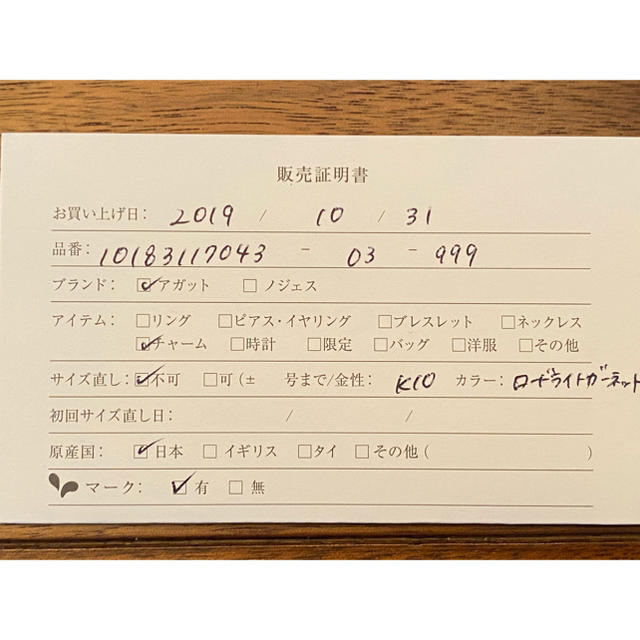 販売証明書
お買い上げ日: 2019 / 10 / 31
品番: 10183117043 - 03 - 999
ブランド: ☑アガット □ノジェス
アイテム: □リング □ピアス・イヤリング □ブレスレット □ネックレス
☑チャーム □時計 □限定 □バッグ □洋服 □その他
サイズ直し: ☑不可 □可(± 号まで/金性: K10 カラー: ロードライトガーネット
初回サイズ直し日: / /
原産国: ☑日本 □イギリス □タイ □その他( )
マーク: ☑有 □無